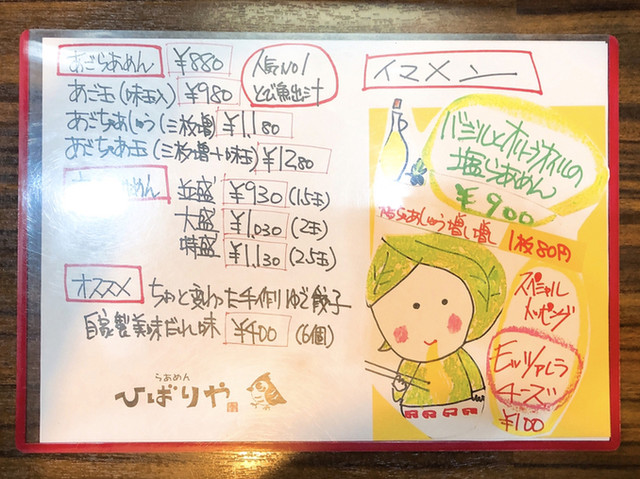 あごらあめん ¥880
人気No1
とび魚出汁
あご玉(味玉入) ¥980
あごちゃあしゅう(三枚増) ¥1,180
あごちゃあ玉(三枚増+味玉) ¥1280
あめん 並盛 ¥930 (1.5玉)
大盛 ¥1,030 (2玉)
特盛 ¥1,130 (2.5玉)
オススメ ちょっと変わった手作りゆで餃子
自家製美味だれ味 ¥400 (6個)
らあめん
ひばりや
イマメン
バジルとオリーブオイルの
塩らあめん
¥900
ちゃあしゅう増し増し 1枚80円
スペシャル
トッピング
モッツァレラ
チーズ
¥100